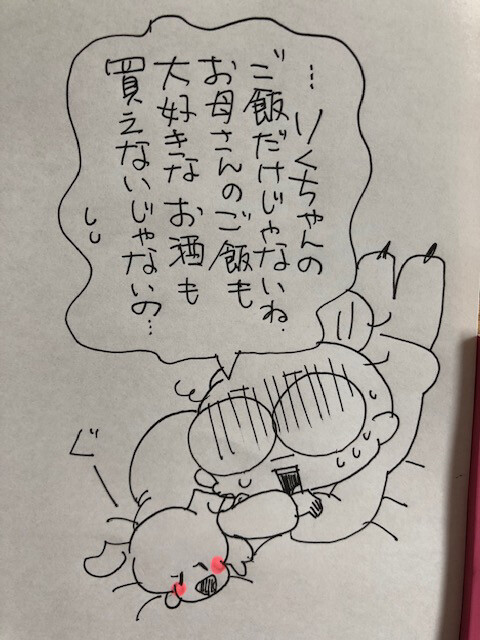 …りくちゃんの
ご飯だけじゃないね.
お母さんのご飯も
大好きなお酒も
買えないじゃないの…